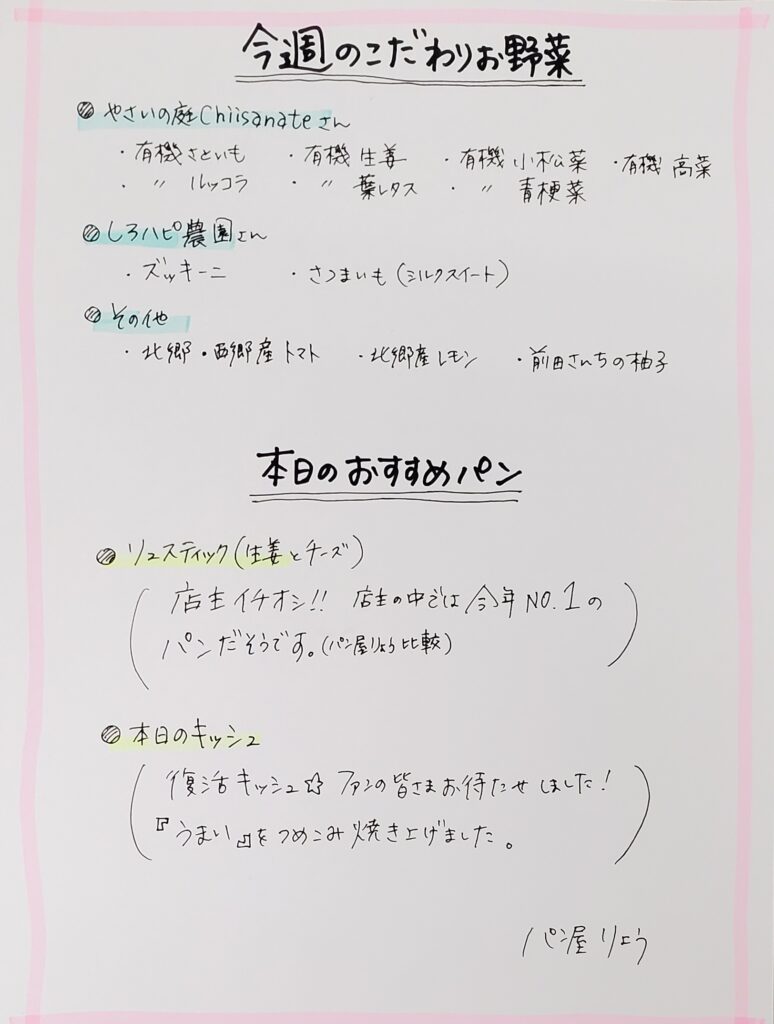 今週のこだわりお野菜
やさいの庭Chiisanateさん
・有機さといも ・有機生姜 ・有機小松菜 ・有機高菜
・ 〃 ルッコラ ・ 〃 葉レタス ・ 〃 青梗菜
しろハピ農園さん
・ズッキーニ ・さつまいも(シルクスイート)
その他
・北郷・西郷産トマト ・北郷産レモン ・前田さんちの柚子
本日のおすすめパン
リュスティック(生姜とチーズ)
(店主イチオシ!! 店主の中では今年NO.1の
パンだそうです。(パン屋りょう比較))
本日のキッシュ
(復活キッシュ☆ ファンの皆さまお待たせしました!
『うまい』をつめこみ焼き上げました。)
パン屋りょう